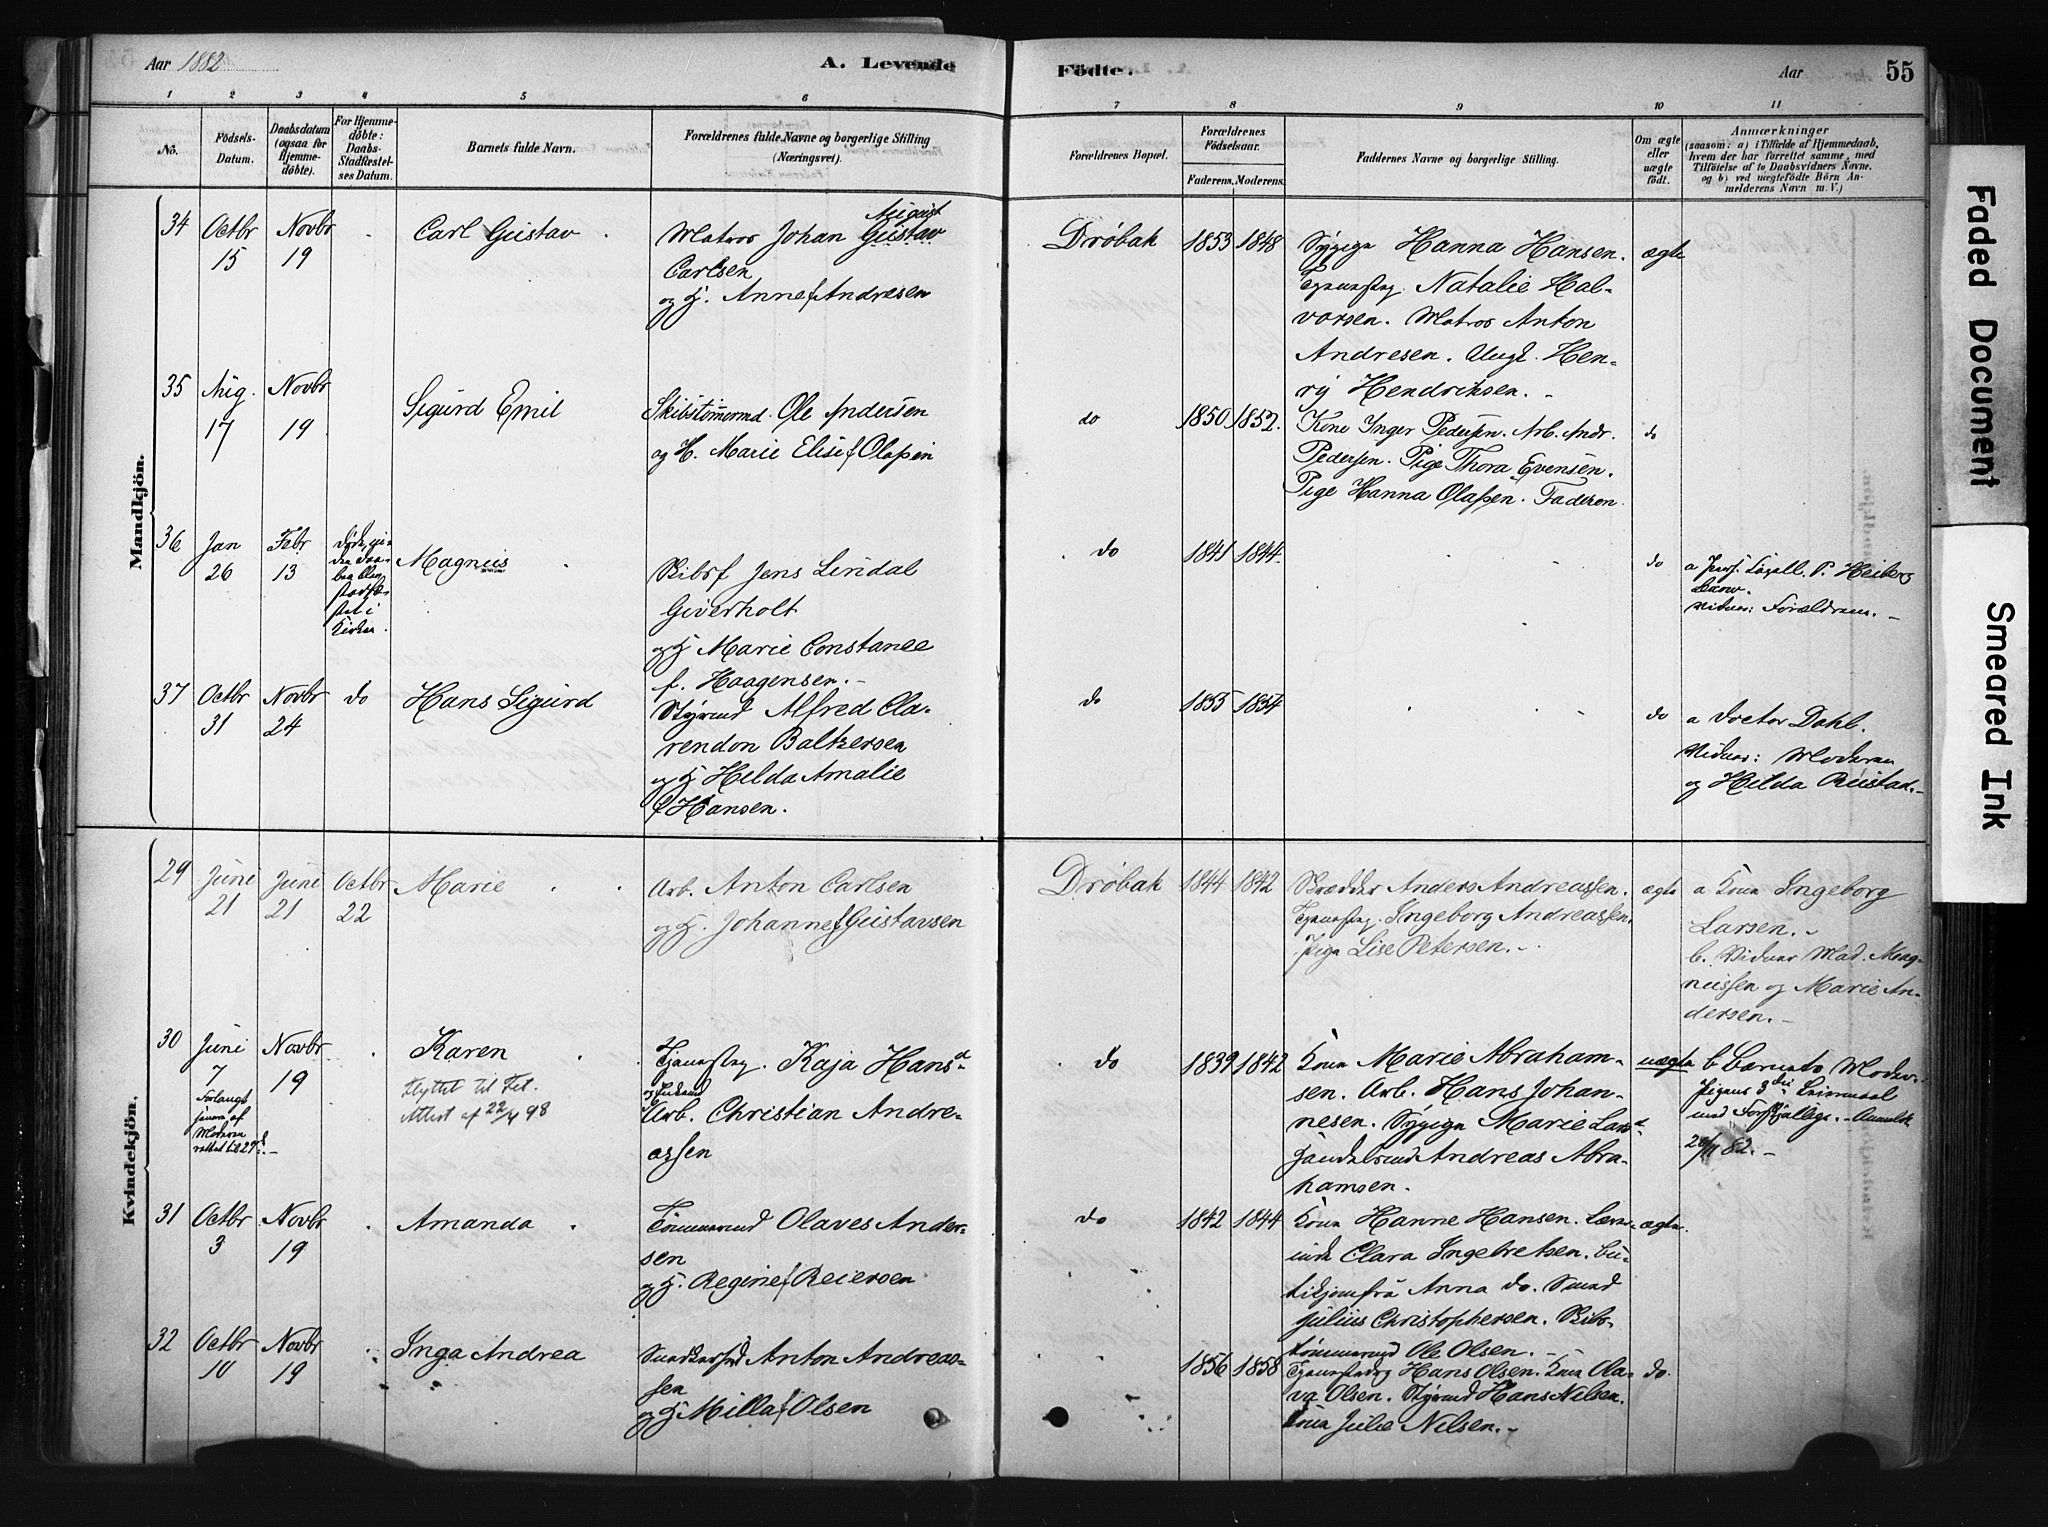 Aar 1882
A. Levende
Födte.
Aar
55
1 2 3 4 5 6 7 8 9 10 11
No.
Födsels-
Datum.
Daabsdatum
(ogsaa for
Hjemme-
døbte).
For Hjemme-
døbte:
Daabs-
Stadfæstel-
ses Datum.
Barnets fulde Navn.
Forældrenes fulde Navne og borgerlige Stilling
(Næringsvei).
Forældrenes Bopæl.
Forældrenes
Födselsaar.
Faderens. Moderens.
Faddernes Navne og borgerlige Stilling.
Om ægte
eller
uægte
født.
Anmærkninger
(saasom: a) i Tilfælde af Hjemmedaab,
hvem der har forrettet samme, med
Tilföielse af to Daabsvidners Navne,
og b) ved uægtefödte Börn An-
melderens Navn m. V.)
Mandkjön.
34
Octbr
15
Novbr
19
Carl Gustav
August
Matros Johan Gustav
Carlsen
og H. Anne f Andresen
Drøbak
1853
1848
Hanna Hansen.
Natalie Hal-
vorsen. Matros Anton
Andresen. Ungk. Hen-
ry Hendriksen.
ægte
35
Aug.
17
Novbr
19
Sigurd Emil
Skibstømmermd. Ole Andersen
og H. Marie Elise f Olassen
do
1850
1852.
Kone Inger Pedersen. Arb. Andr.
Pedersen. Pige Thora Evensen.
Pige Hanna Olassen. Faderen.
do
36
Jan
26
Febr
13
Kirken.
Magnus
Skibsf Jens Lindal
Giverholt
og H Marie Constance
f. Haagensen.
do
1841
1844.
do
P. Heiberg
Vidner: Forældrene.
37
Octbr
31
Novbr
24
do
Hans Sigurd
Styrmd Alfred Cla-
rendon Baltzersen
og H Helda Amalie
f Hansen.
do
1855
1854
do
a Doctor Dahl.
Vidner: Moderen
og Hilda Rustad.
Kvindekjön.
29
Juni
21
Juni
21
Octbr
22
Marie
Arb. Anton Carlsen
og H. Johanne f Gustavsen
Drøbak
1844
1842
Skrædder Anders Andreassen.
Ingeborg Andreassen.
Pige Lise Petersen.
ægte
a Kone Ingeborg
Larsen.
b. Vidner Mad. Mag-
nussen og Marie An-
dersen.
30
Juni
7
Novbr
19
Karen
Flyttet til Fet.
Attest af 22/4 98
Kaja Hansd
Arb. Christian Andre-
assen
do
1839
1842
Kone Marie Abraham-
sen. Arb. Hans Johan-
nesen. Marie Larsd
Andreas Abra-
hamsen.
uægte
b Barnets Moder.
31
Octbr
3
Novbr
19
Amanda
Tømmermd Olaves Ander-
sen
og H. Regine f Reiersen
do
1842
1844
Kone Hanne Hansen. Lærer-
inde Clara Ingebretsen. Bu-
tikjomfru Anna do. Smed
Julius Christophersen. Skibs-
tømmermd Ole Olsen.
ægte.
32
Octbr
10
Novbr
19
Inga Andrea
Anton Andreas-
sen
og H Milla f Olsen
1856
1858
Hans Olsen. Kone Ola-
va Olsen. Styrmd Hans Nilsen.
Kone Julie Nilsen.
do.
Faded Document
Smeared Ink